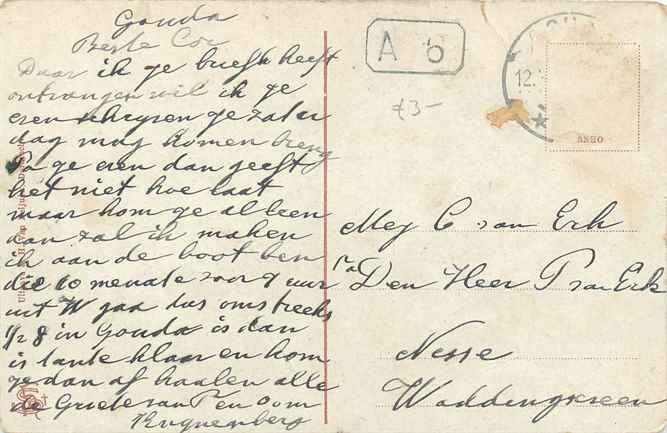 Gouda
Beste Cor
Daar ik je briefk heeft
ontvangen wil ik je
even schryven je zater
dag mag komen breng
Pa je even dan geeft
het niet hoe laat
maar kom je alleen
dan zal ik maken
ik aan de boot ben
die 10 menute voor 7 uur
uit W gaa dus omstreeks
1/2 8 in Gouda is dan
is tante klaar en kom
je dan af haalen alle
de Groete van T en Oom
A 6
12.
f 3-
ANRO
Mej C van Erk
Den Heer P van Erk
Nesse
Waddingsveen